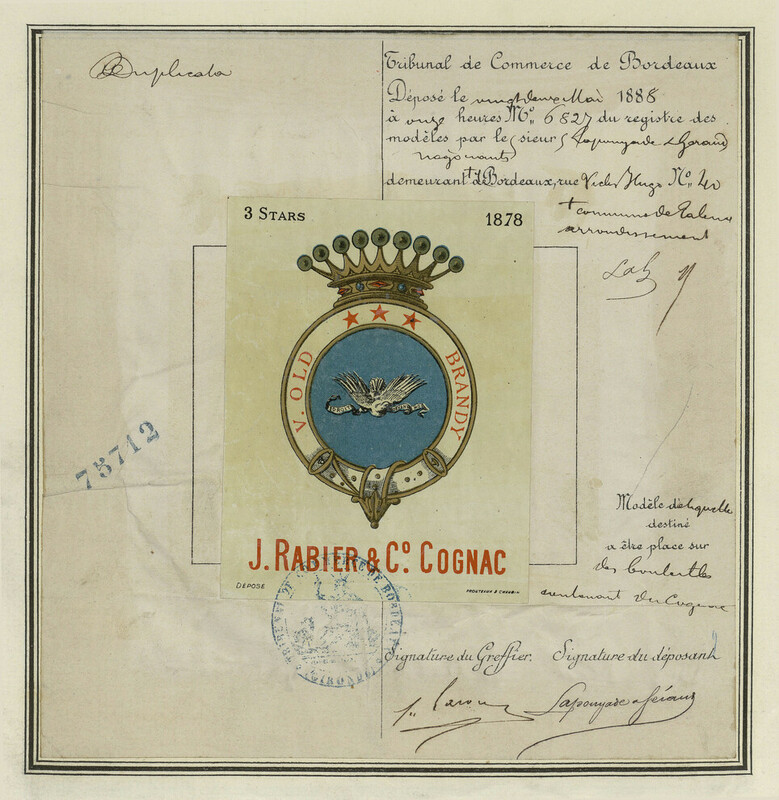 Duplicata
Tribunal de Commerce de Bordeaux
Déposé le vingt deux Mai 1888
à onze heures No. 6827 du registre des
modèles par le sieurs Laponyade & Gérand
négociants
demeurant à Bordeaux, rue Victor Hugo No. 40
+ commune de Talence
arrondissement
3 STARS 1878
V. OLD BRANDY
J. RABIER & Co. COGNAC
DEPOSE
75712
Modèle d'étiquette
destiné
a être place sur
des bouteilles
contenant du Cognac
TRIBUNAL DE COMMERCE DE BORDEAUX
(GIRONDE)
Signature du Greffier. Signature du déposant